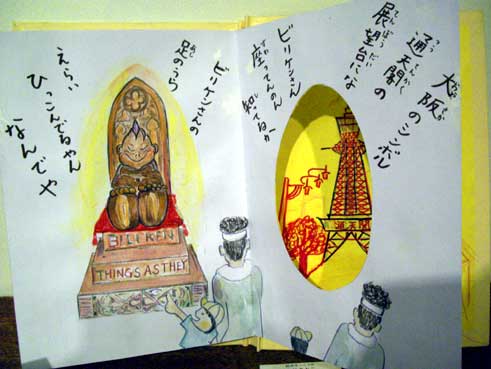 大阪のシンボル
通天閣の
展望台にな
ビリケンさん
座ってんのん
知ってるか
通天閣
ビリケンさんの
足のうら
えらい
ひっこんでるやん
なんでや
BILIKEN
THINGS AS THEY